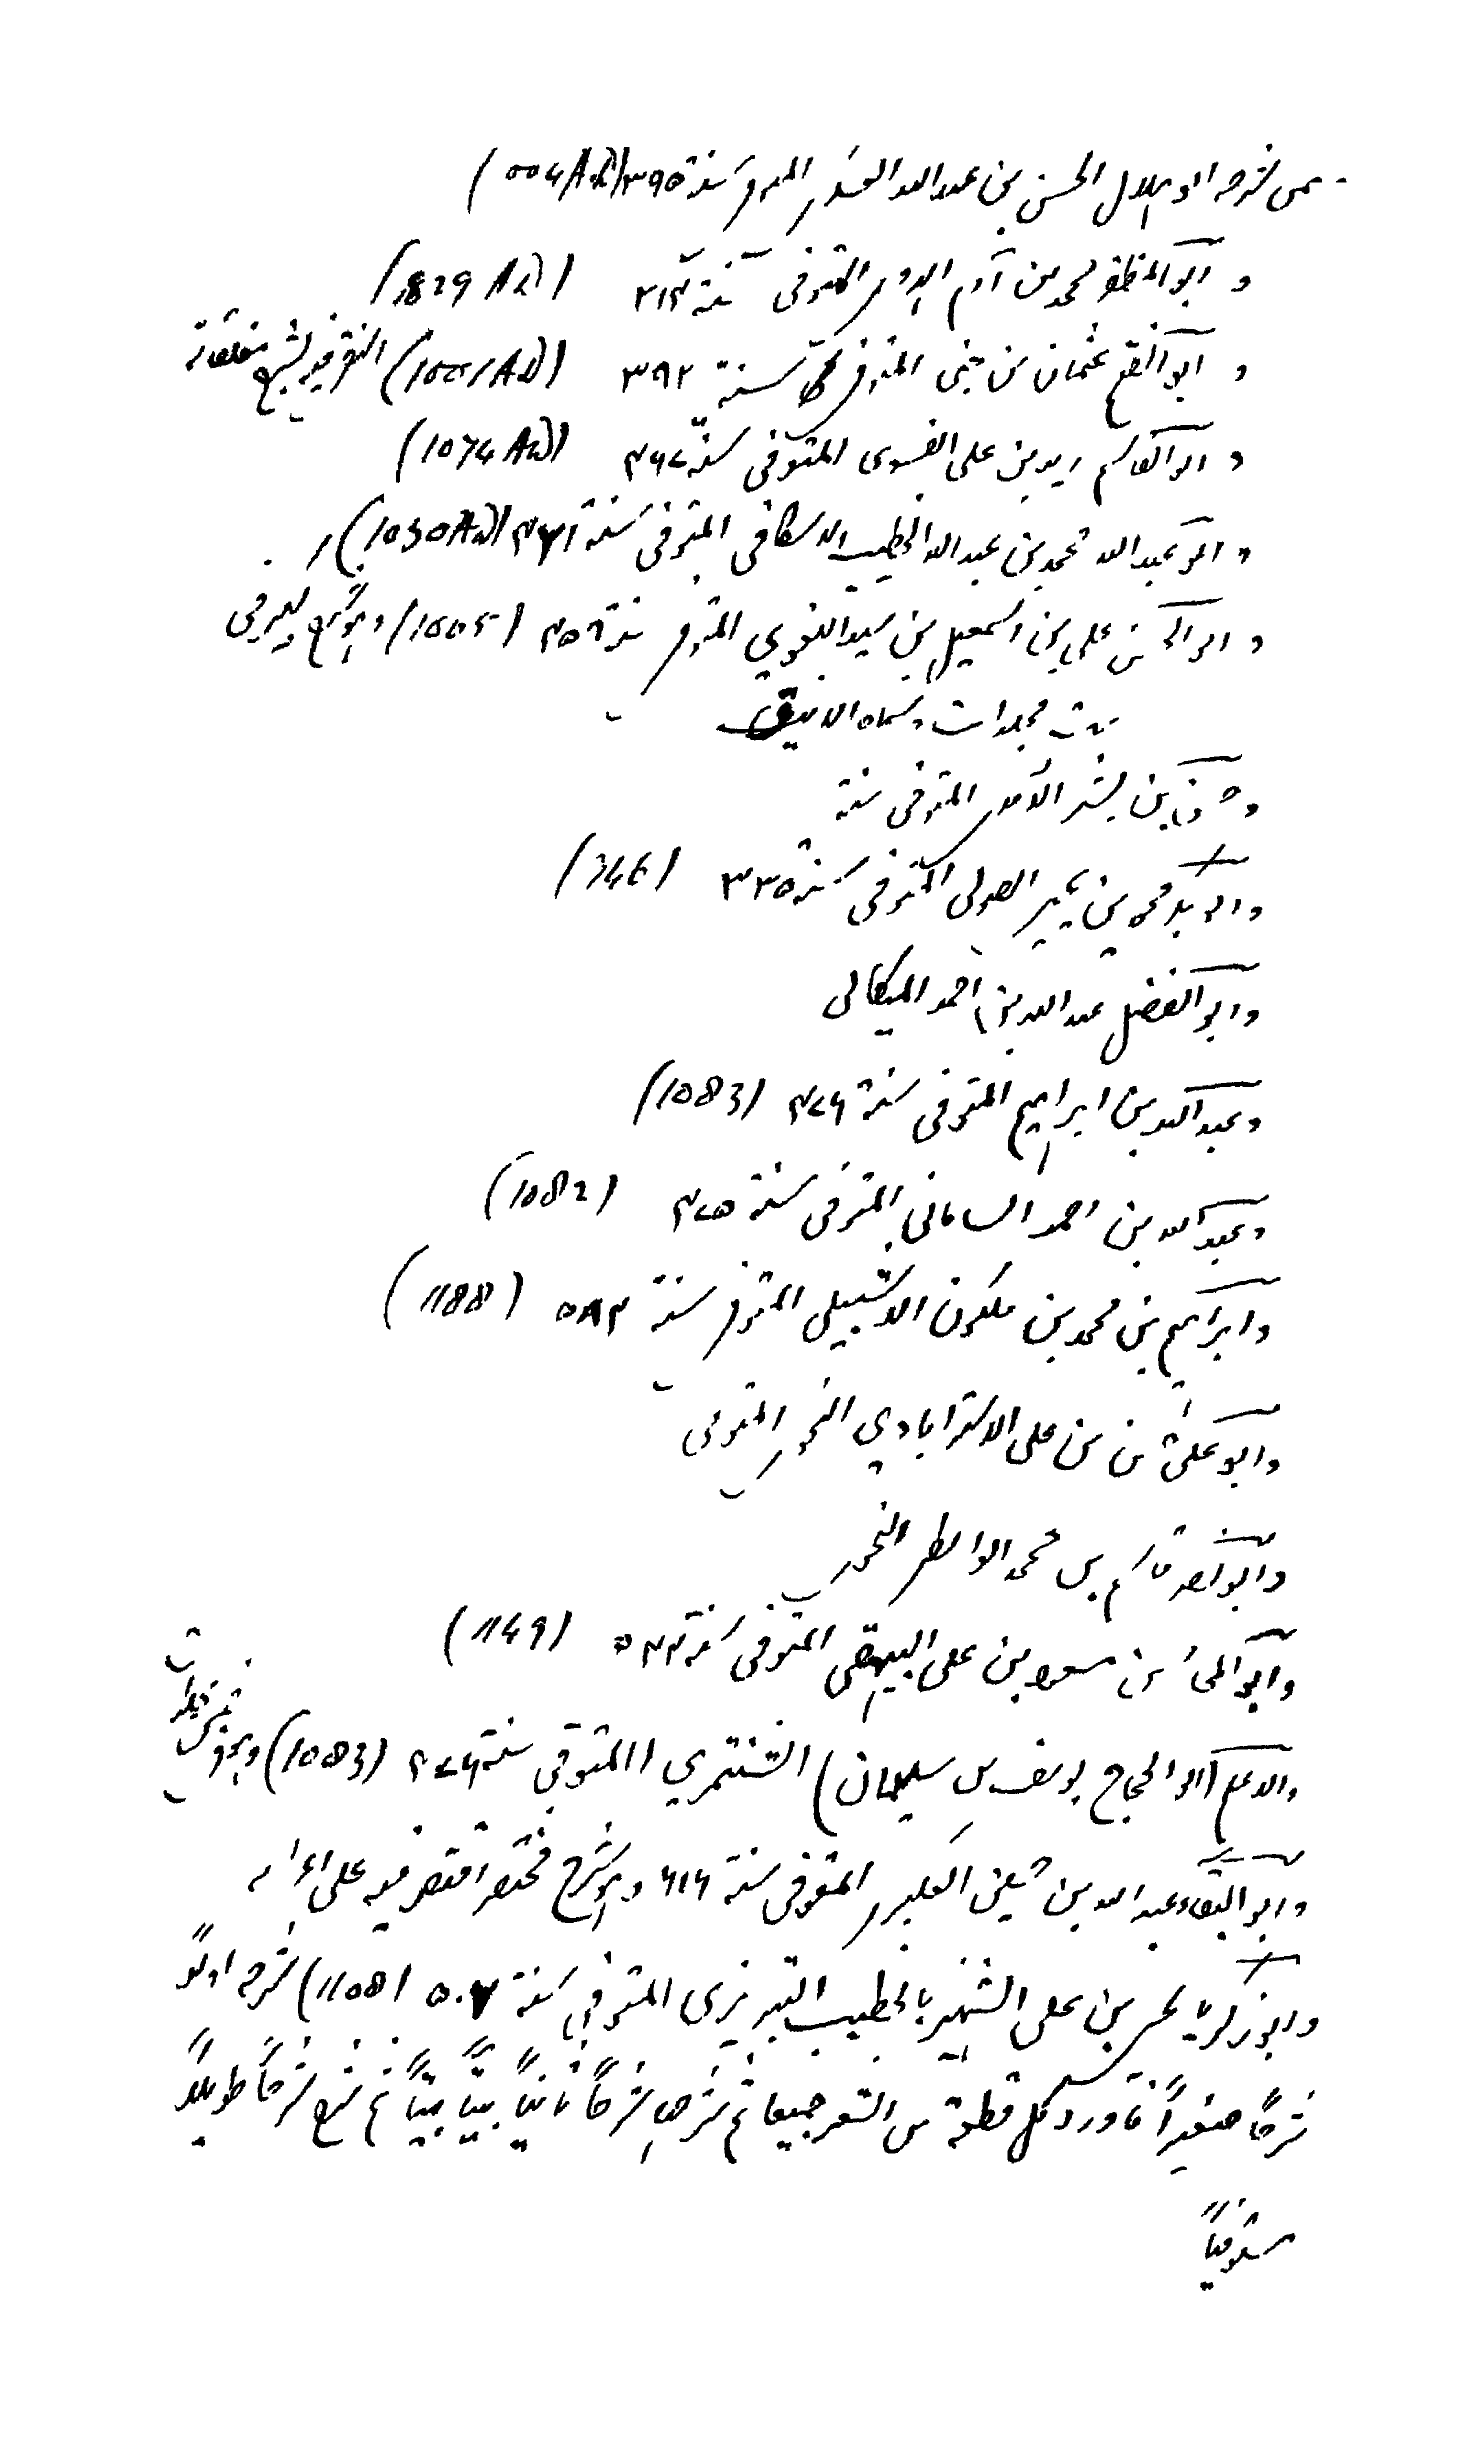 ممن شرحه ابو هلال الحسن بن عبد الله العسكري المتوفى سنة ٣٩٥ (1004 AD)
و ابو المظفر محمد بن آدم الهروي المتوفى سنة ٢١٤ (829 AD)
و ابو الفتح عثمان بن جني المتوفى سنة ٣٩٢ (1001 AD)
و ابو القاسم زيد بن علي الفسوي المتوفى سنة ٤٦٧ (1074 AD)
و ابو عبد الله محمد بن عبد الله الخطيب الاسكافي المتوفى سنة ٤٢١ (1030 AD)
و ابو الحسن علي بن اسمعيل بن سيده اللغوي المتوفى سنة ٤٥٦ (1065) وهو شرح كبير في
ست مجلدات و سماه الانيق
و حسن بن بشر الآمدي المتوفى سنة
و ابو بكر محمد بن يحيى الصولي المتوفى سنة ٣٣٥ (946)
و ابو الفضل عبد الله بن احمد الميكالي
و عبد الله بن ابراهيم المتوفى سنة ٤٧٦ (1083)
و عبد الله بن احمد الساماني المتوفى سنة ٤٧٥ (1082)
و ابراهيم بن محمد بن ملكون الاشبيلي المتوفى سنة ٥٨٤ (1188)
و ابو علي حسن بن علي الاسترابادي النحوي المتوفى
و ابو نصر قاسم بن محمد الواسطي النحوي
و ابو المحاسن مسعود بن علي البيهقي المتوفى سنة ٥٤٤ (1149)
و الاعلم (ابو الحجاج يوسف بن سليمان) الشنتمري المتوفى سنة ٤٧٦ (1083)
و ابو البقاء عبد الله بن حسين العكبري المتوفى سنة ٦١٦ وهو شرح مختصر اقتصر فيه على اعرابه
و ابو زكريا يحيى بن علي الشهير بالخطيب التبريزي المتوفى سنة ٥٠٢ (1108) شرحه اولاً
شرحاً صغيراً فاورد كل قطعة من الشعر جميعا ثم شرحها شرحاً ثانياً بيتاً بيتاً ثم شرح شرحاً طويلاً
مستوفياً